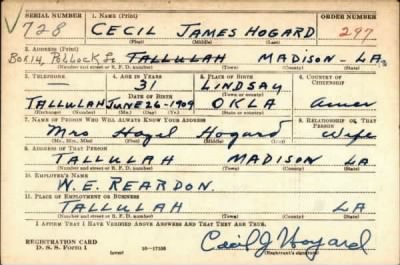 SERIAL NUMBER 1. NAME (Print) ORDER NUMBER
√ 728 CECIL JAMES HOGARD 297
(First) (Middle) (Last)
2. ADDRESS (Print)
Box 14, Pollock La TALLULAH MADISON - LA.
(Number and street or R. F. D. number) (Town) (County) (State)
3. TELEPHONE 4. AGE IN YEARS 5. PLACE OF BIRTH 6. COUNTRY OF CITIZENSHIP
— 31 LINDSAY
DATE OF BIRTH
TALLULAH JUNE 26-1909 OKLA Amer
(Exchange) (Number) (Mo.) (Day) (Yr.) (State or country)
7. NAME OF PERSON WHO WILL ALWAYS KNOW YOUR ADDRESS 8. RELATIONSHIP OF THAT PERSON
Mrs Hazel Hogard Wife
(Mr., Mrs., Miss) (First) (Middle) (Last)
9. ADDRESS OF THAT PERSON
TALLULAH MADISON LA
(Number and street or R. F. D. number) (Town) (County) (State)
10. EMPLOYER'S NAME
W. E. REARDON.
11. PLACE OF EMPLOYMENT OR BUSINESS
TALLULAH LA
(Number and street or R. F. D. number) (Town) (County) (State)
I AFFIRM THAT I HAVE VERIFIED ABOVE ANSWERS AND THAT THEY ARE TRUE.
REGISTRATION CARD
D. S. S. Form 1 (over) 16-17105 Cecil J Hogard
(Registrant's signature)